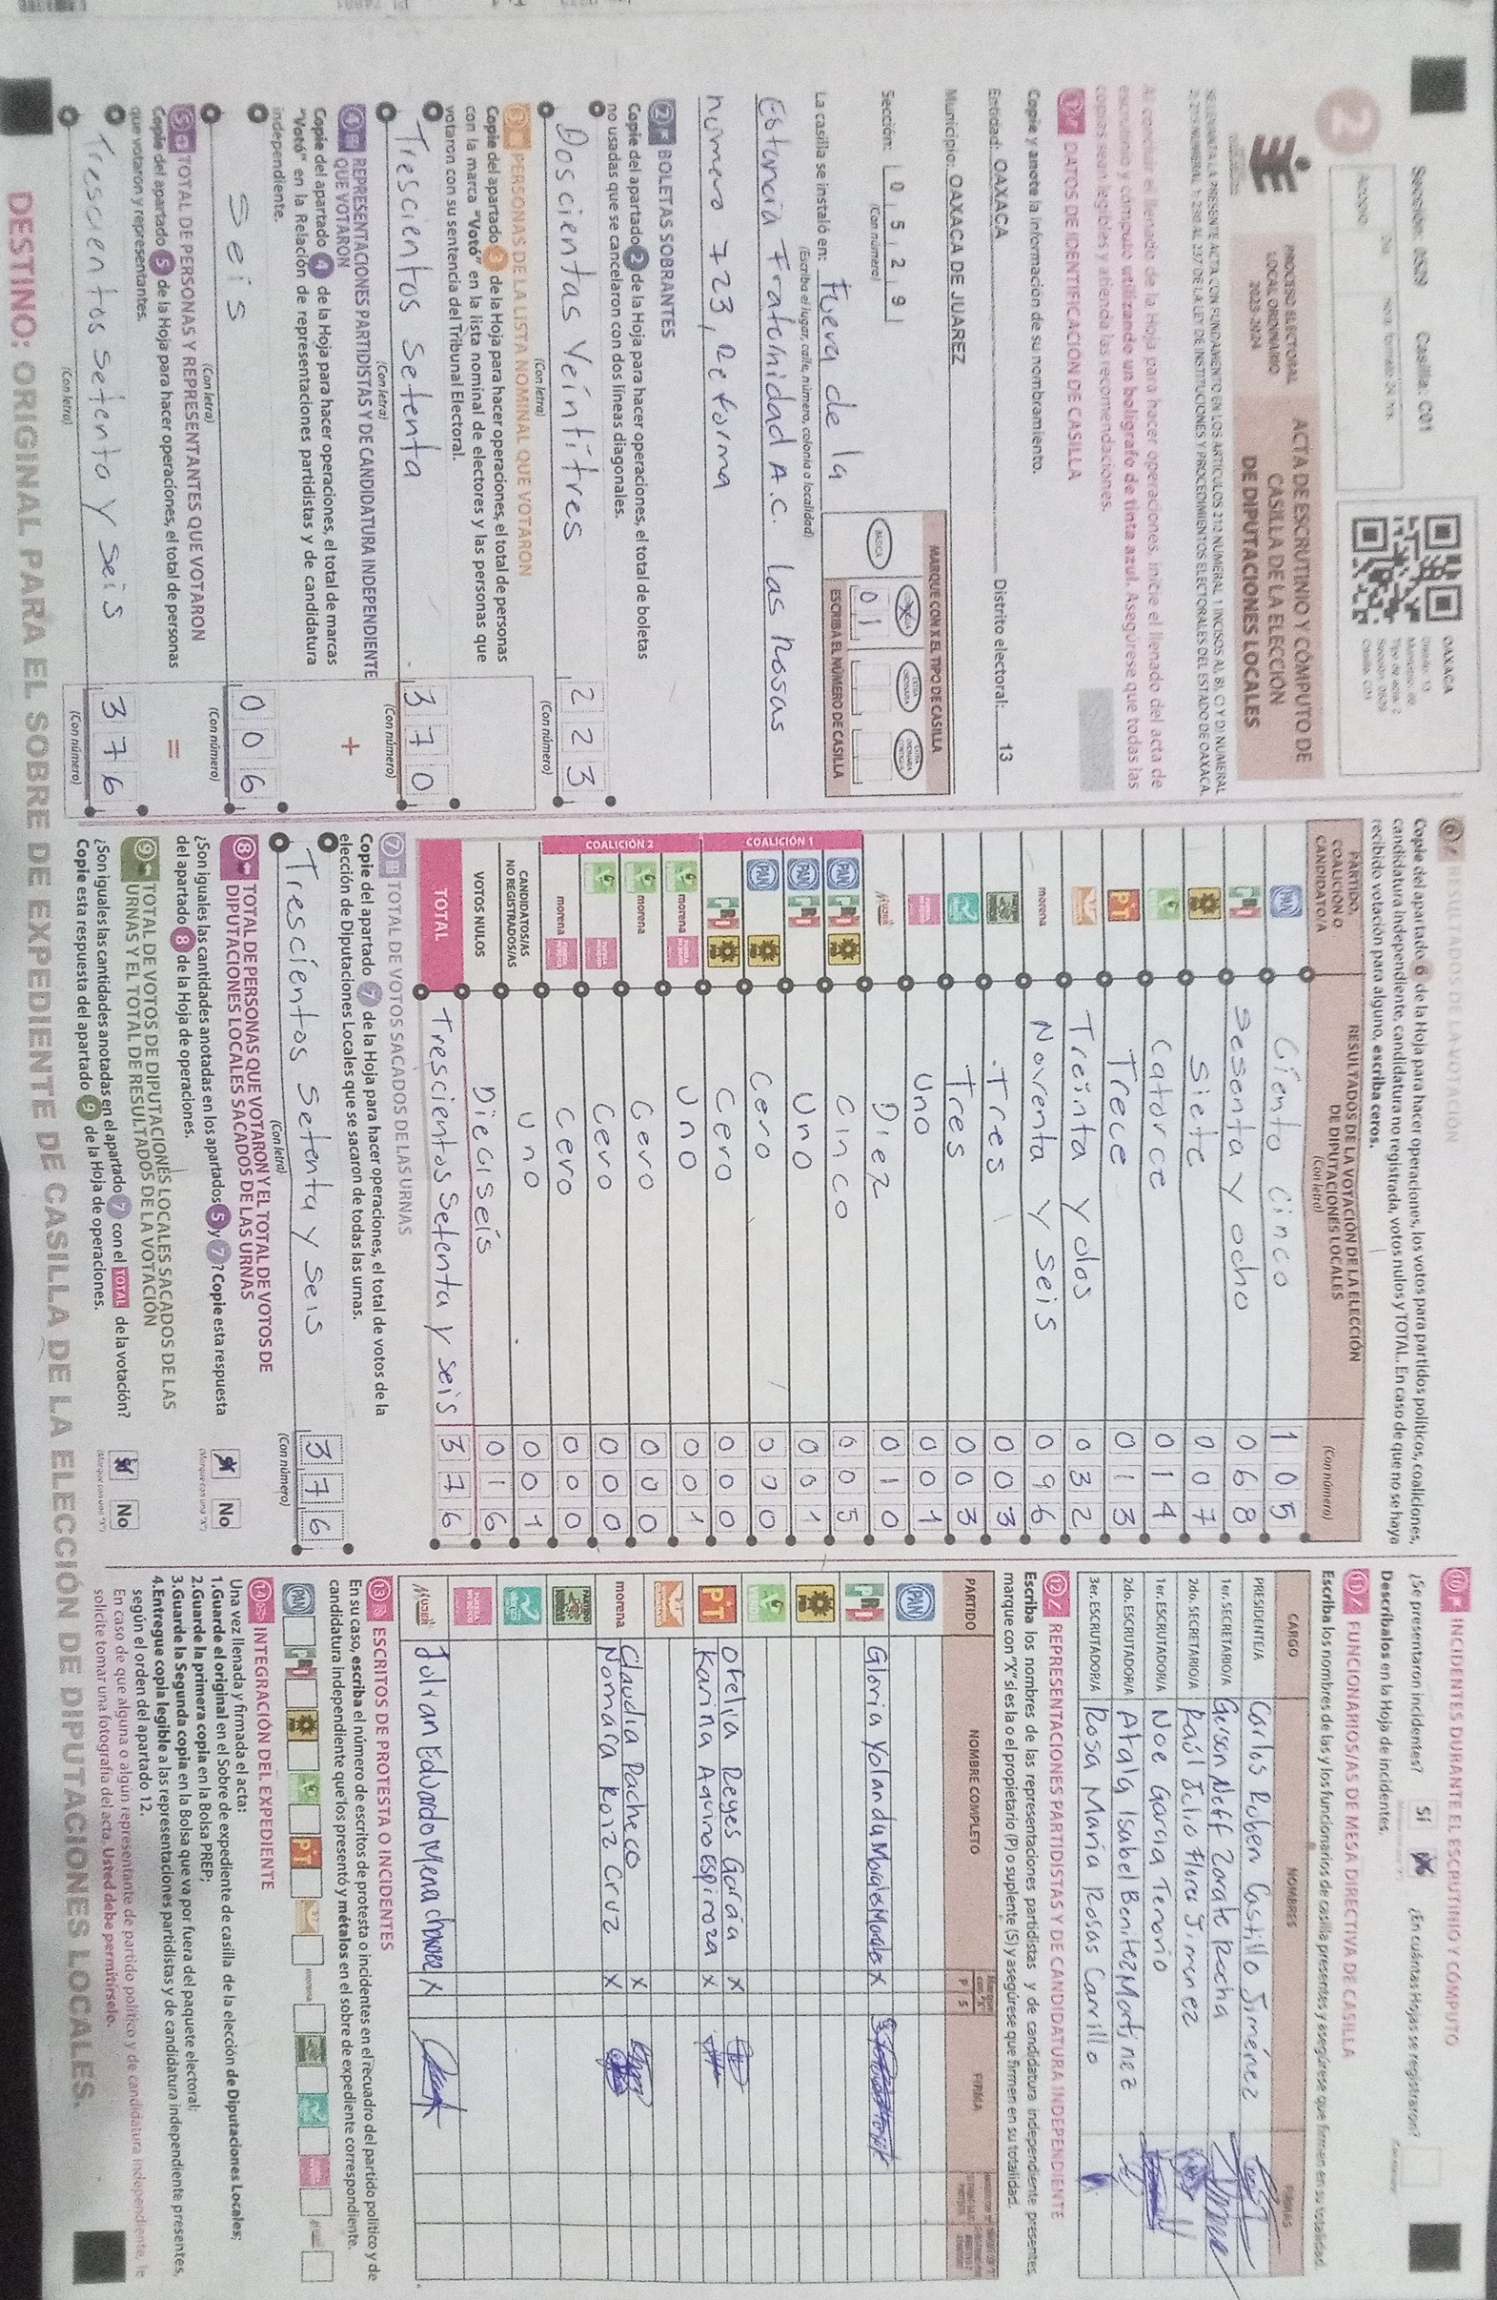 Sección: 0529 Casilla: C01
OAXACA
Distrito: 13
Tipo de acta: 2
Sección: 0529
Casilla: C01
2
PROCESO ELECTORAL
LOCAL ORDINARIO
2023-2024
ACTA DE ESCRUTINIO Y CÓMPUTO DE
CASILLA DE LA ELECCIÓN
DE DIPUTACIONES LOCALES
Al concluir el llenado de la Hoja para hacer operaciones, inicie el llenado del acta de
escrutinio y cómputo utilizando un bolígrafo de tinta azul. Asegúrese que todas las
copias sean legibles y atienda las recomendaciones.
1 DATOS DE IDENTIFICACIÓN DE CASILLA
Copie y anote la información de su nombramiento.
Entidad: OAXACA Distrito electoral: 13
Municipio: OAXACA DE JUAREZ
Sección: 0 5 2 9
(Con número)
MARQUE CON X EL TIPO DE CASILLA
BÁSICA X
ESCRIBA EL NÚMERO DE CASILLA
0 1
La casilla se instaló en: Fuera de la
(Escriba el lugar, calle, número, colonia o localidad)
Estancia Fraternidad A.C. las Rosas
número 723, Reforma
2 BOLETAS SOBRANTES
Copie del apartado 2 de la Hoja para hacer operaciones, el total de boletas
no usadas que se cancelaron con dos líneas diagonales.
Doscientas Veintitres 2 2 3
(Con letra) (Con número)
3 PERSONAS DE LA LISTA NOMINAL QUE VOTARON
Copie del apartado 3 de la Hoja para hacer operaciones, el total de personas
con la marca "Votó" en la lista nominal de electores y las personas que
votaron con su sentencia del Tribunal Electoral.
Trescientos setenta 3 7 0
(Con letra) (Con número)
4 REPRESENTACIONES PARTIDISTAS Y DE CANDIDATURA INDEPENDIENTE
QUE VOTARON
Copie del apartado 4 de la Hoja para hacer operaciones, el total de marcas
"Votó" en la Relación de representaciones partidistas y de candidatura
independiente.
+
Seis 0 0 6
(Con letra) (Con número)
5 TOTAL DE PERSONAS Y REPRESENTANTES QUE VOTARON
Copie del apartado 5 de la Hoja para hacer operaciones, el total de personas
que votaron y representantes.
=
Trescientos setenta y seis 3 7 6
(Con letra) (Con número)
6 RESULTADOS DE LA VOTACIÓN
Copie del apartado 6 de la Hoja para hacer operaciones, los votos para partidos políticos, coaliciones,
candidatura independiente, candidatura no registrada, votos nulos y TOTAL. En caso de que no se haya
recibido votación para alguno, escriba ceros.
PARTIDO,
COALICIÓN O
CANDIDATO/A
RESULTADOS DE LA VOTACIÓN DE LA ELECCIÓN
DE DIPUTACIONES LOCALES
(Con letra) (Con número)
PAN Ciento cinco 1 0 5
PRI Sesenta y ocho 0 6 8
Siete 0 0 7
Catorce 0 1 4
PT Trece 0 1 3
Treinta y dos 0 3 2
morena Noventa y seis 0 9 6
Tres 0 0 3
Tres 0 0 3
Uno 0 0 1
Diez 0 1 0
COALICIÓN 1
PAN PRI Cinco 0 0 5
PAN PRI Uno 0 0 1
PAN Cero 0 0 0
PRI Cero 0 0 0
COALICIÓN 2
morena Uno 0 0 1
morena Cero 0 0 0
Cero 0 0 0
morena Cero 0 0 0
CANDIDATOS/AS
NO REGISTRADOS/AS Uno 0 0 1
VOTOS NULOS Dieciseís 0 1 6
TOTAL Trescientos Setenta y seis 3 7 6
7 TOTAL DE VOTOS SACADOS DE LAS URNAS
Copie del apartado 7 de la Hoja para hacer operaciones, el total de votos de la
elección de Diputaciones Locales que se sacaron de todas las urnas.
Trescientos setenta y seis 3 7 6
(Con letra) (Con número)
8 TOTAL DE PERSONAS QUE VOTARON Y EL TOTAL DE VOTOS DE
DIPUTACIONES LOCALES SACADOS DE LAS URNAS
¿Son iguales las cantidades anotadas en los apartados 5 y 7? Copie esta respuesta
del apartado 8 de la Hoja de operaciones.
No
9 TOTAL DE VOTOS DE DIPUTACIONES LOCALES SACADOS DE LAS
URNAS Y EL TOTAL DE RESULTADOS DE LA VOTACIÓN
¿Son iguales las cantidades anotadas en el apartado 7 con el TOTAL de la votación?
Copie esta respuesta del apartado 9 de la Hoja de operaciones.
No
10 INCIDENTES DURANTE EL ESCRUTINIO Y CÓMPUTO
¿Se presentaron incidentes? Sí ¿En cuántas Hojas se registraron?
Descríbalos en la Hoja de incidentes.
11 FUNCIONARIOS/AS DE MESA DIRECTIVA DE CASILLA
Escriba los nombres de las y los funcionarios de casilla presentes y asegúrese que firmen en su totalidad.
CARGO NOMBRES FIRMAS
PRESIDENTE/A Carlos Ruben Castillo Jiménez
1er. SECRETARIO/A Gerson Neff Zarate Rocha
2do. SECRETARIO/A Raúl Julio Flores Jimenez
1er. ESCRUTADOR/A Noe Garcia Tenorio
2do. ESCRUTADOR/A Atala Isabel Benitez Martinez
3er. ESCRUTADOR/A Rosa María Rosas Carrillo
12 REPRESENTACIONES PARTIDISTAS Y DE CANDIDATURA INDEPENDIENTE
Escriba los nombres de las representaciones partidistas y de candidatura independiente presentes,
marque con "X" si es la o el propietario (P) o suplente (S) y asegúrese que firmen en su totalidad.
PARTIDO NOMBRE COMPLETO P S FIRMA
PAN
PRI Gloria Yolanda Morales Morales X
PT Ofelia Reyes García X
Karina Aquino Espinoza X
morena Claudia Pacheco X
Nomara Roiz Cruz X
Julian Eduardo Mena X
13 ESCRITOS DE PROTESTA O INCIDENTES
En su caso, escriba el número de escritos de protesta o incidentes en el recuadro del partido político y de
candidatura independiente que los presentó y métalos en el sobre de expediente correspondiente.
PAN PRI PT morena
14 INTEGRACIÓN DEL EXPEDIENTE
Una vez llenada y firmada el acta:
1.Guarde el original en el Sobre de expediente de casilla de la elección de Diputaciones Locales;
2.Guarde la primera copia en la Bolsa PREP;
3.Guarde la Segunda copia en la Bolsa que va por fuera del paquete electoral;
4.Entregue copia legible a las representaciones partidistas y de candidatura independiente presentes,
según el orden del apartado 12.
En caso de que alguna o algún representante de partido político y de candidatura independiente, le
solicite tomar una fotografía del acta, Usted debe permitírselo.
DESTINO: ORIGINAL PARA EL SOBRE DE EXPEDIENTE DE CASILLA DE LA ELECCIÓN DE DIPUTACIONES LOCALES.